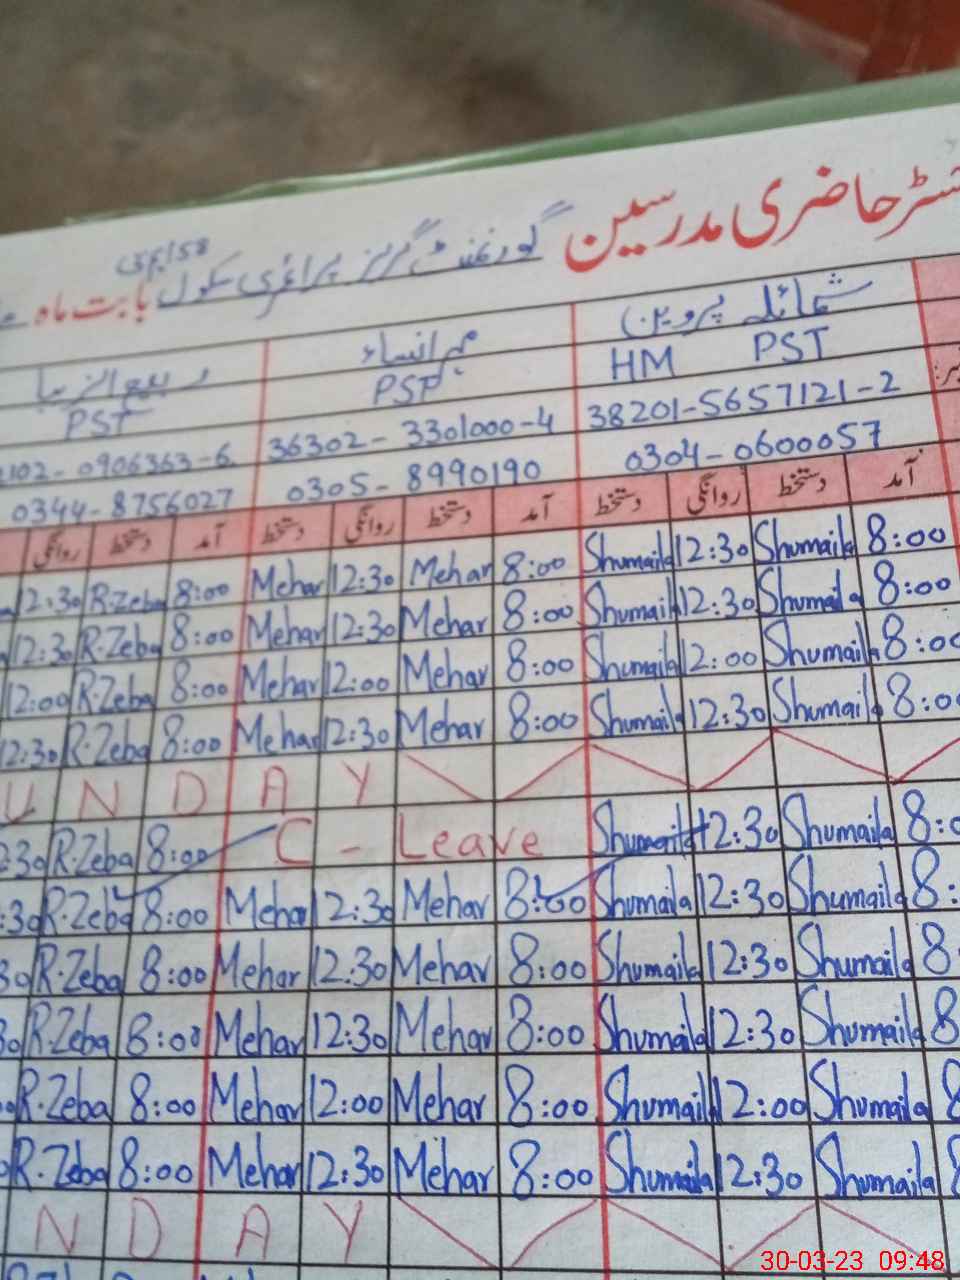 حاضری مدرسین گورنمنٹ گرلز پرائمری سکول بابت ماہ
شمائلہ پروین مہرالنساء
HM PST PST PST
38201-5657121-2 36302-3301000-4 0906363-6
0304-0600057 0305-8990190 0344-8756027
آمد دستخط روانگی دستخط آمد دستخط روانگی دستخط آمد دستخط روانگی
12:30 R.Zeba 8:00 Mehar 12:30 Mehar 8:00 Shumaila 12:30 Shumaila 8:00
12:30 R.Zeba 8:00 Mehar 12:30 Mehar 8:00 Shumaila 12:30 Shumaila 8:00
12:00 R.Zeba 8:00 Mehar 12:00 Mehar 8:00 Shumaila 12:00 Shumaila 8:00
12:30 R.Zeba 8:00 Mehar 12:30 Mehar 8:00 Shumaila 12:30 Shumaila 8:00
U N D A Y
:30 R.Zeba 8:00 C - Leave Shumaila 12:30 Shumaila 8:0
:30 R.Zeba 8:00 Mehar 12:30 Mehar 8:00 Shumaila 12:30 Shumaila 8:
30 R.Zeba 8:00 Mehar 12:30 Mehar 8:00 Shumaila 12:30 Shumaila 8
R.Zeba 8:00 Mehar 12:30 Mehar 8:00 Shumaila 12:30 Shumaila 8
R.Zeba 8:00 Mehar 12:00 Mehar 8:00 Shumaila 12:00 Shumaila 8
R.Zeba 8:00 Mehar 12:30 Mehar 8:00 Shumaila 12:30 Shumaila 8
N D A Y
30-03-23 09:48